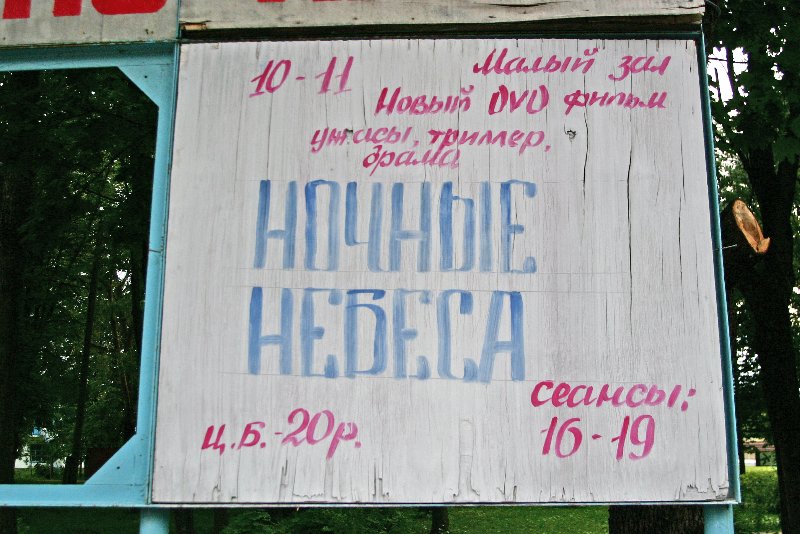 10-11 Малый зал
Новый DVD фильм
ужасы, триллер,
драма
НОЧНЫЕ
НЕБЕСА
сеансы:
ц.Б.-20р. 16-19